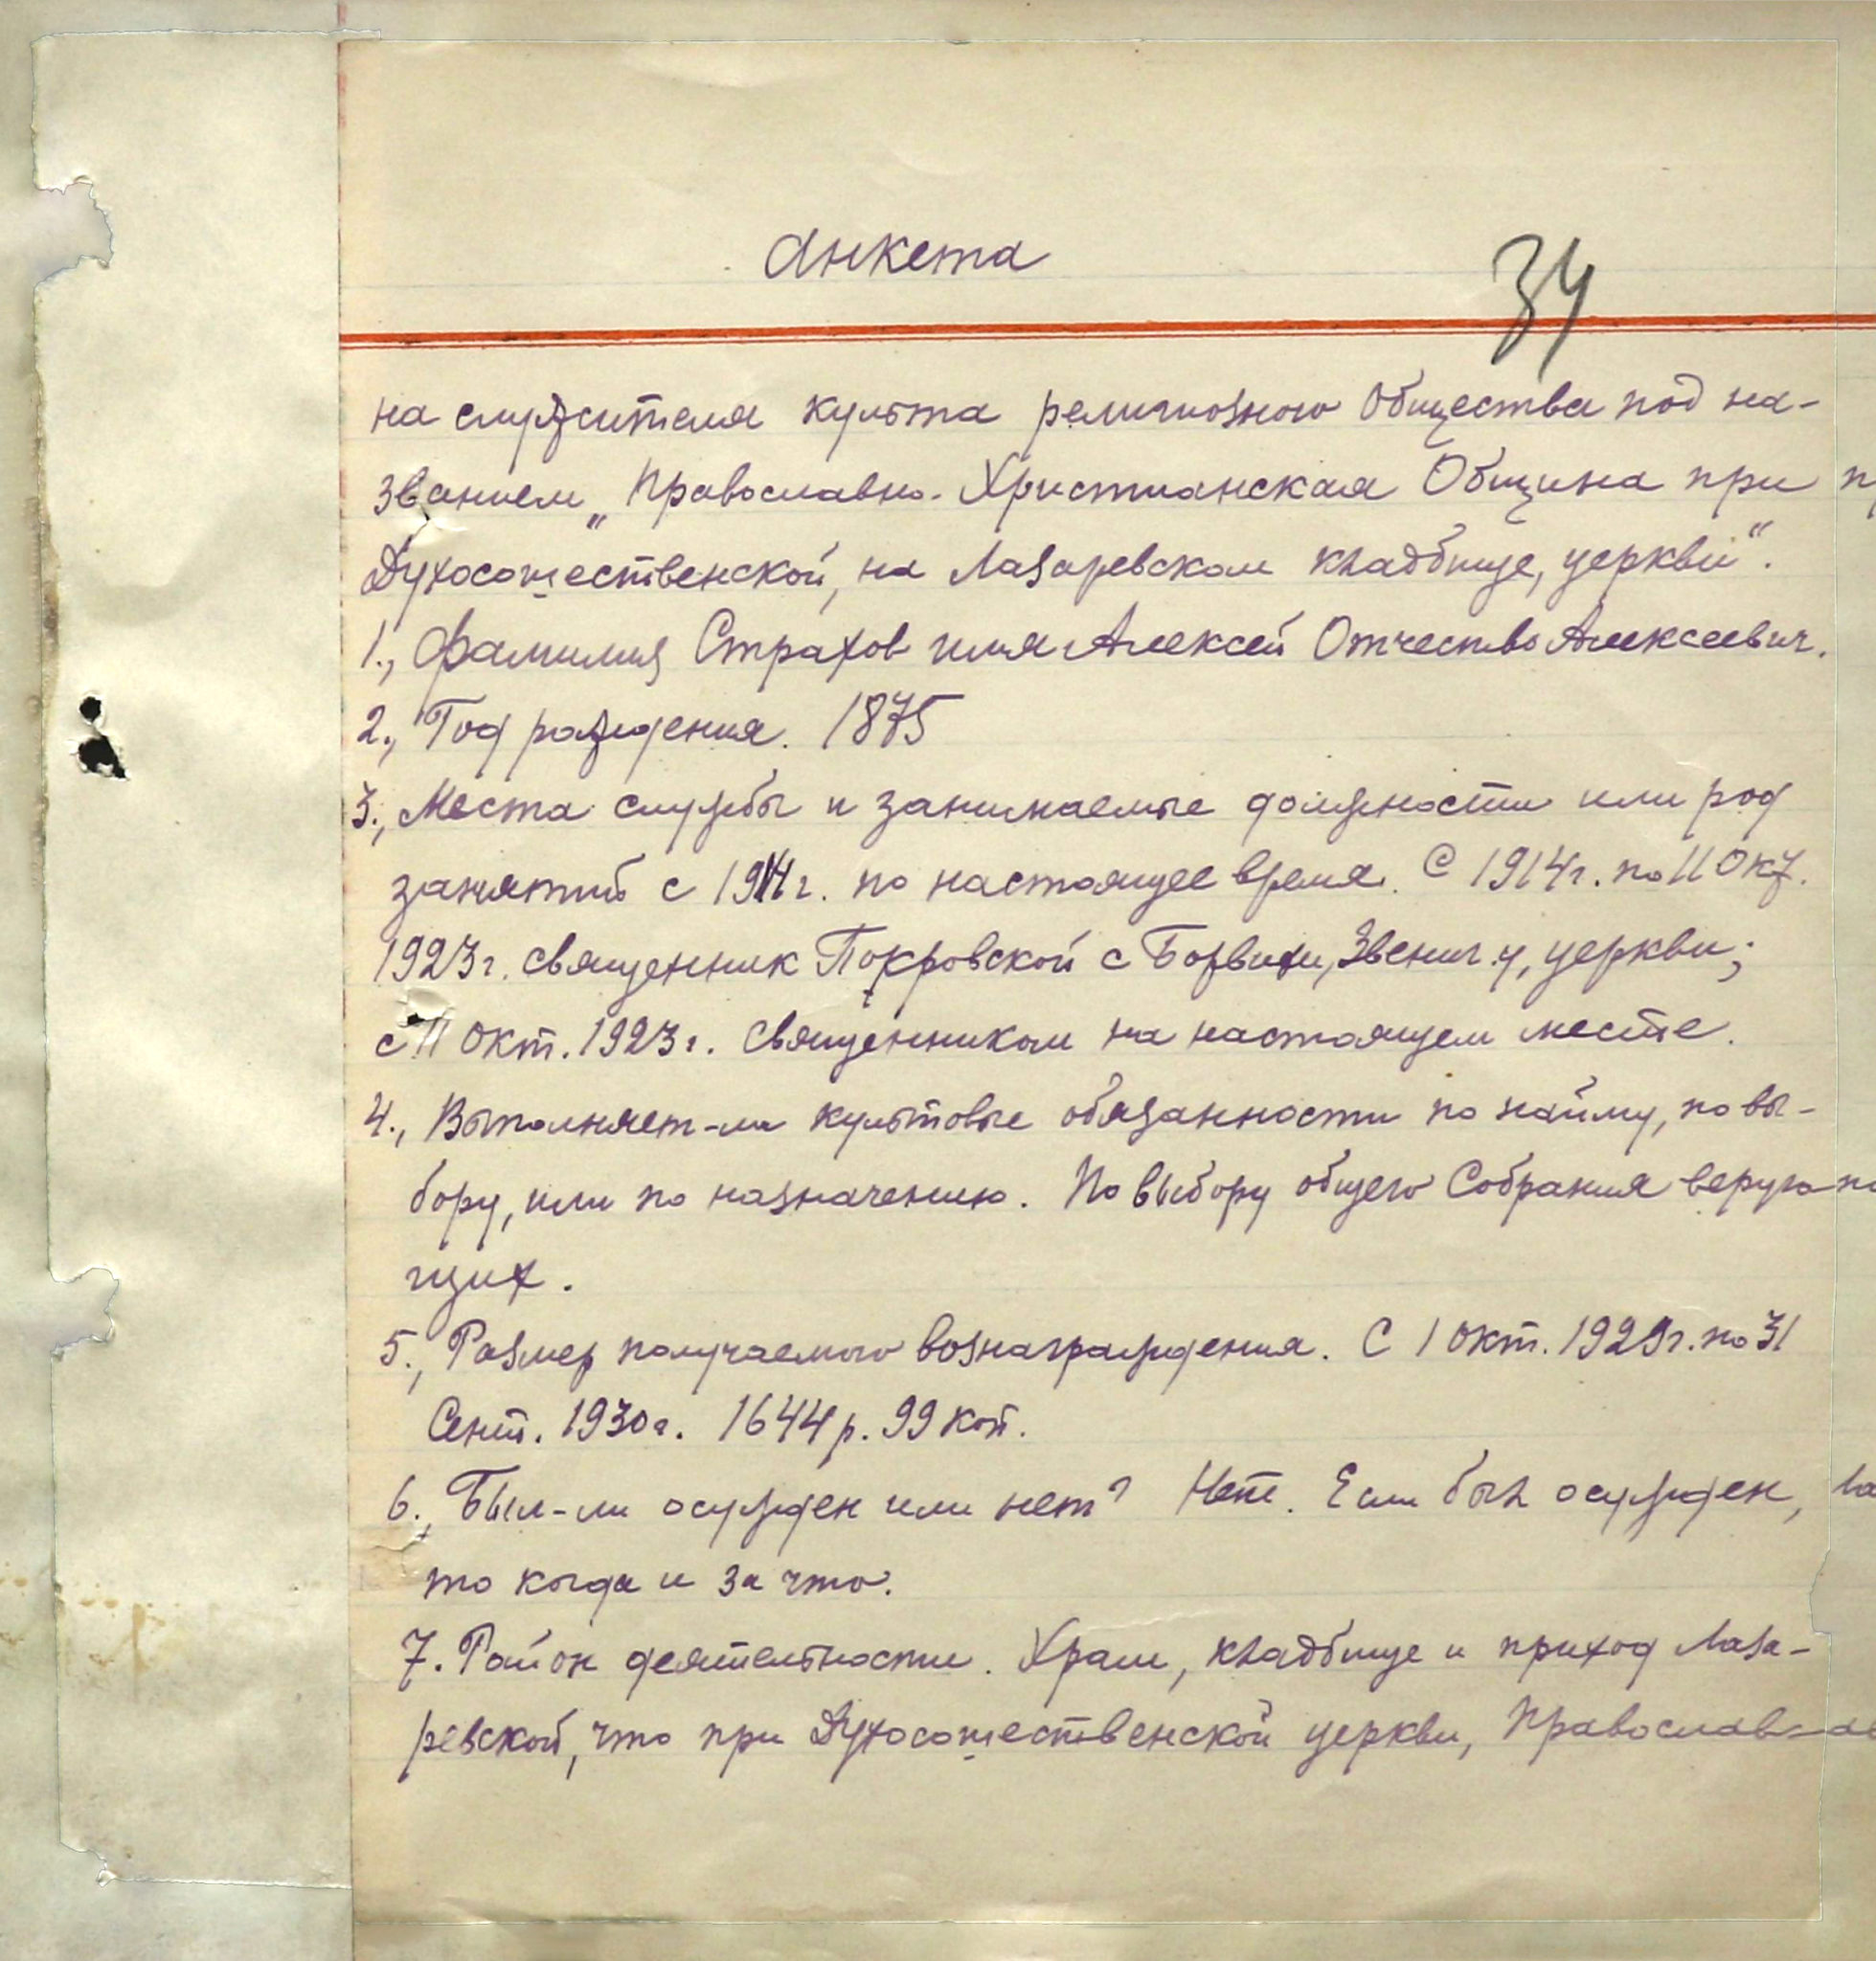 Анкета
34
на служителя культа религиозного Общества под на-
званием „Православно-Христианская Община при
Духосошественской, на Лазаревском кладбище, церкви“.
1., Фамилия Страхов имя Алексей Отчество Алексеевич.
2., Год рождения. 1875
3., Места службы и занимаемые должности или род
занятий с 1914 г. по настоящее время. С 1914 г. по 11 Окт.
1923 г. священник Покровской с Борвихи, Звениг. у, церкви;
с 11 Окт. 1923 г. священником на настоящем месте.
4., Выполняет-ли культовые обязанности по найму, по вы-
бору, или по назначению. По выбору общего Собрания верую
щих.
5., Размер получаемого вознаграждения. С 1 Окт. 1929 г. по 31
Сент. 1930 г. 1644 р. 99 коп.
6., Был-ли осужден или нет? Нет. Если был осужден,
то когда и за что.
7. Район деятельности. Храм, кладбище и приход Лаза-
ревской, что при Духосошественской церкви, Православ-